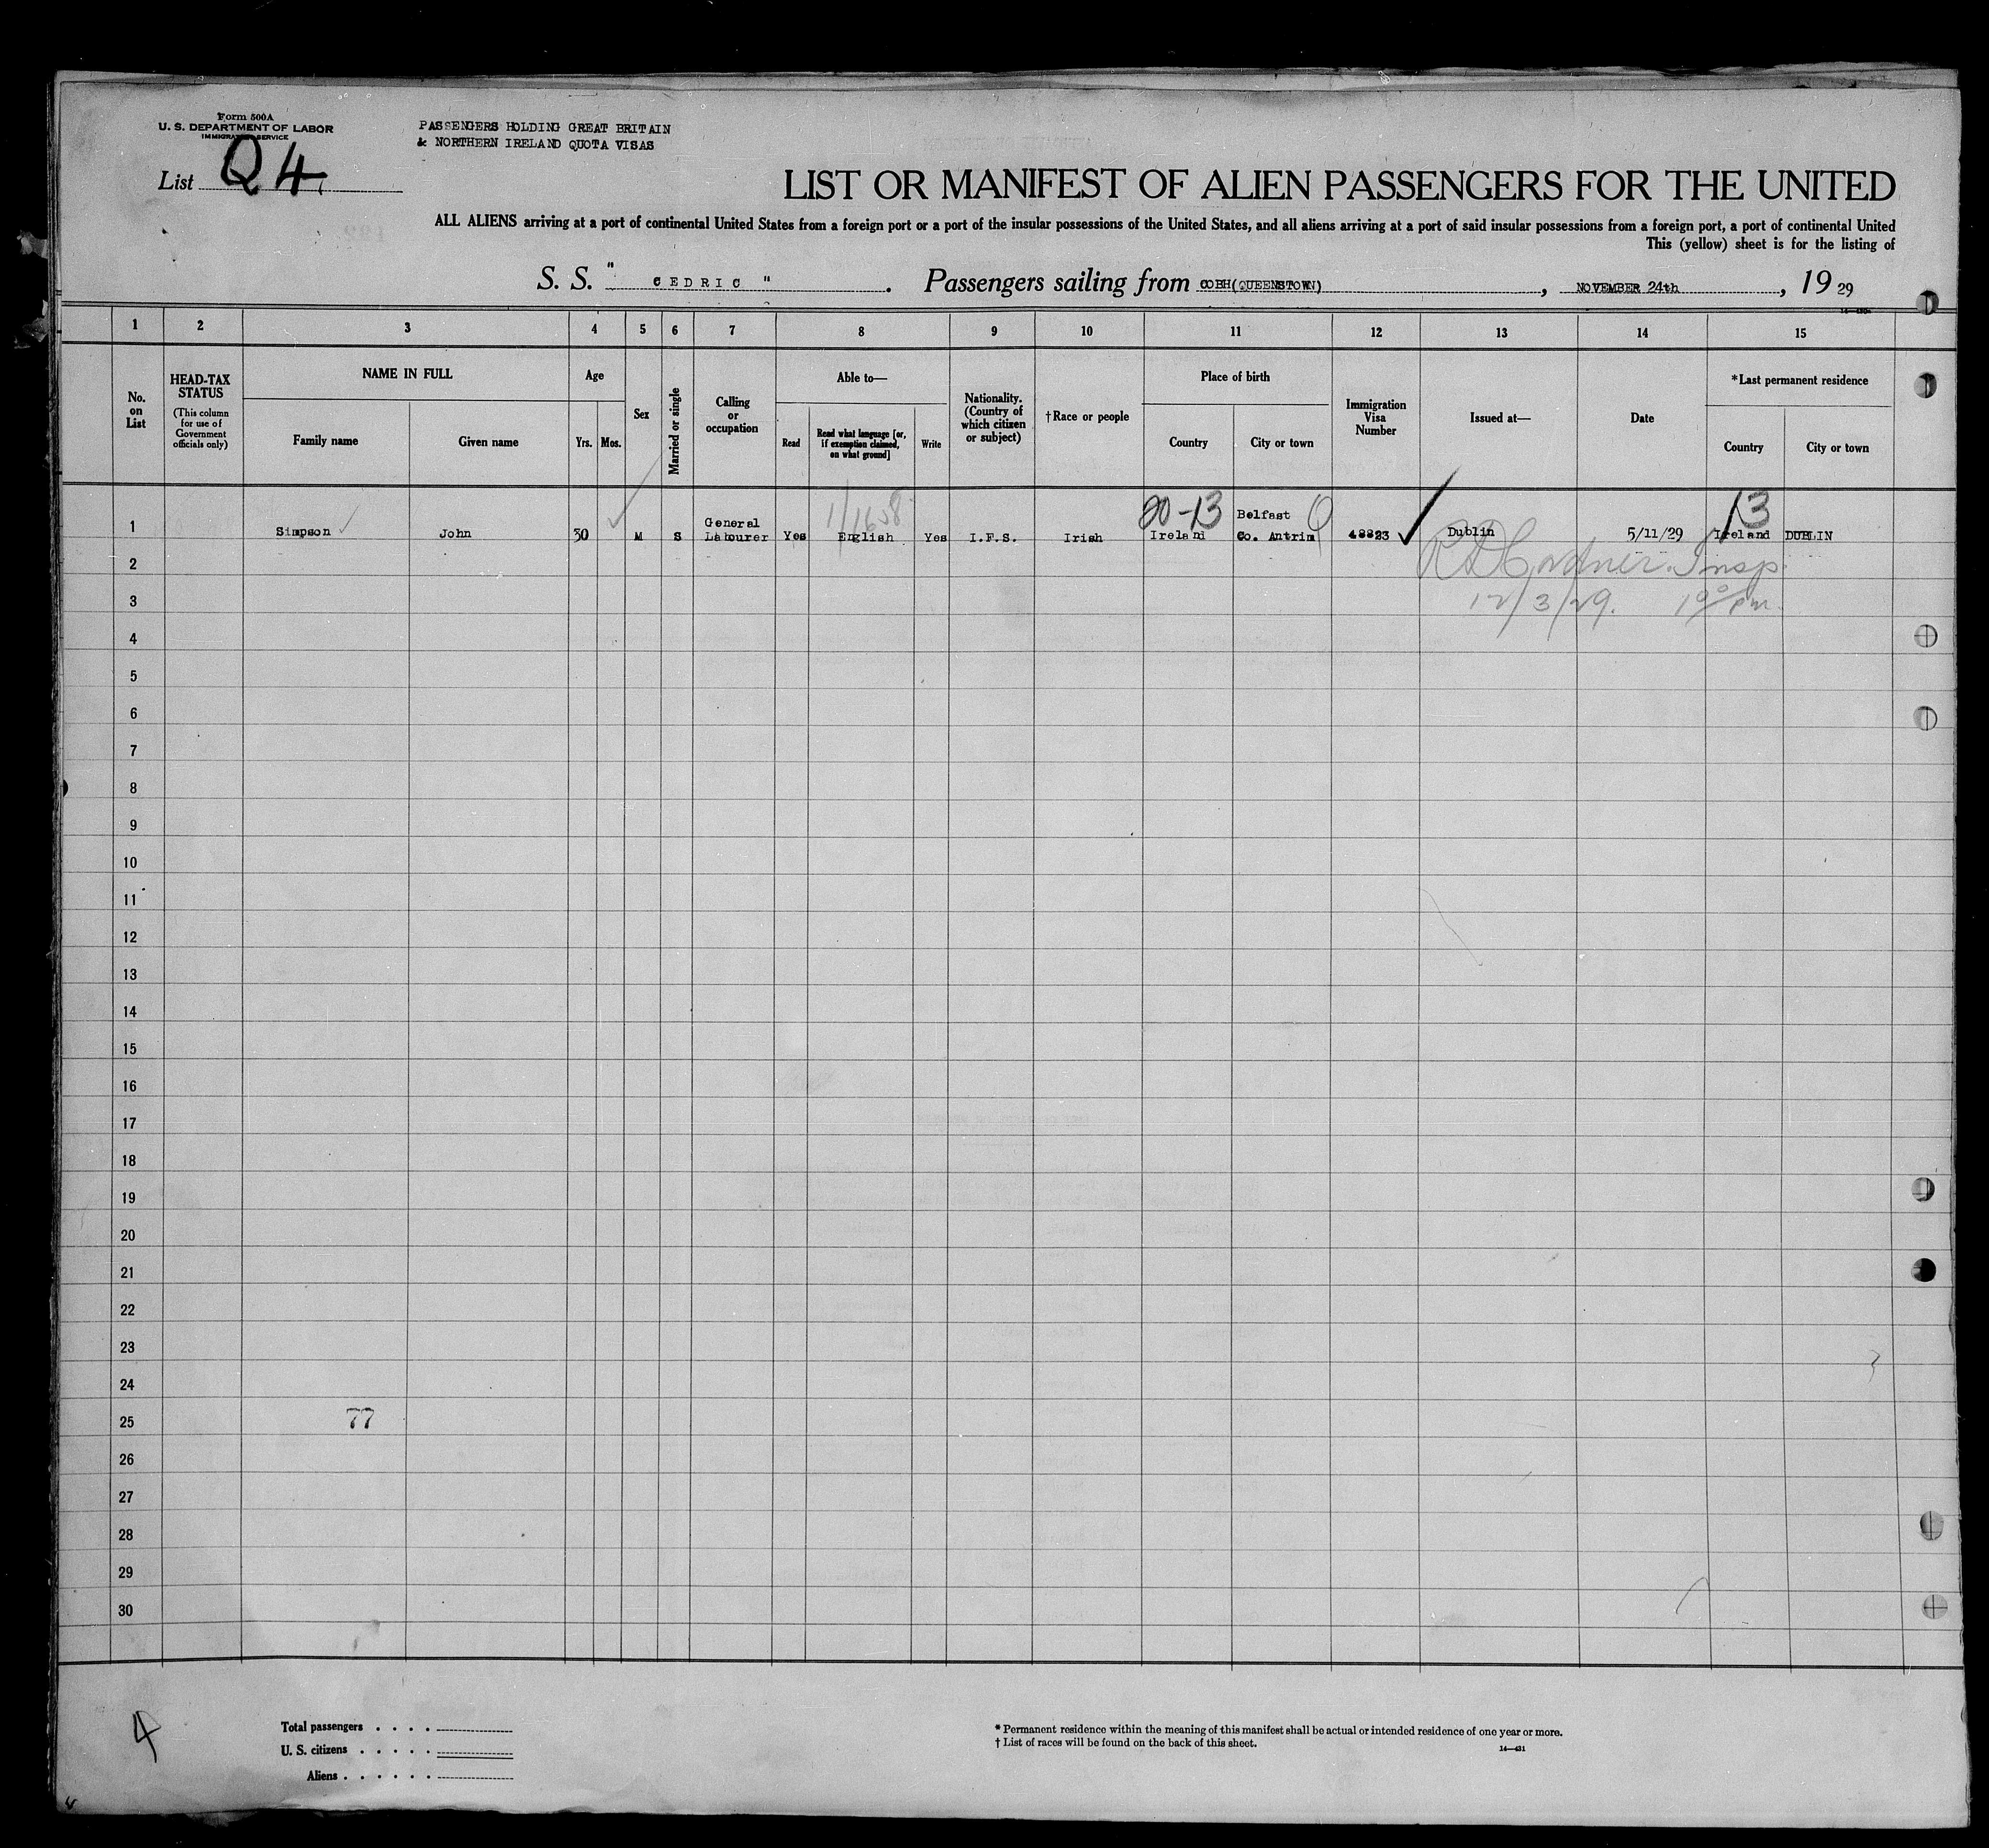 Form 500A
U. S. DEPARTMENT OF LABOR
IMMIGRATION SERVICE
PASSENGERS HOLDING GREAT BRITAIN
& NORTHERN IRELAND QUOTA VISAS
List Q4
LIST OR MANIFEST OF ALIEN PASSENGERS FOR THE UNITED
ALL ALIENS arriving at a port of continental United States from a foreign port or a port of the insular possessions of the United States, and all aliens arriving at a port of said insular possessions from a foreign port, a port of continental United
This (yellow) sheet is for the listing of
S. S. " CEDRIC ". Passengers sailing from COBH(QUEENSTOWN), NOVEMBER 24th, 19 29
1 2 3 4 5 6 7 8 9 10 11 12 13 14 15
No. on List
HEAD-TAX STATUS
(This column for use of Government officials only)
NAME IN FULL
Family name
Given name
Age
Yrs.
Mos.
Sex
Married or single
Calling or occupation
Able to—
Read
Read what language [or, if exemption claimed, on what ground]
Write
Nationality. (Country of which citizen or subject)
†Race or people
Place of birth
Country
City or town
Immigration Visa Number
Issued at—
Date
*Last permanent residence
Country
City or town
20-13 13
1 Simpson John 30 M S General Labourer Yes English Yes I.F.S. Irish Ireland Belfast Co. Antrim 48823 Dublin 5/11/29 Ireland DUBLIN
2 Insp.
3 12/3/29. 1 00 pm.
4
5
6
7
8
9
10
11
12
13
14
15
16
17
18
19
20
21
22
23
24
25 77
26
27
28
29
30
4
Total passengers . . . .
U. S. citizens . . . . .
Aliens . . . . . .
* Permanent residence within the meaning of this manifest shall be actual or intended residence of one year or more.
† List of races will be found on the back of this sheet.
14—431